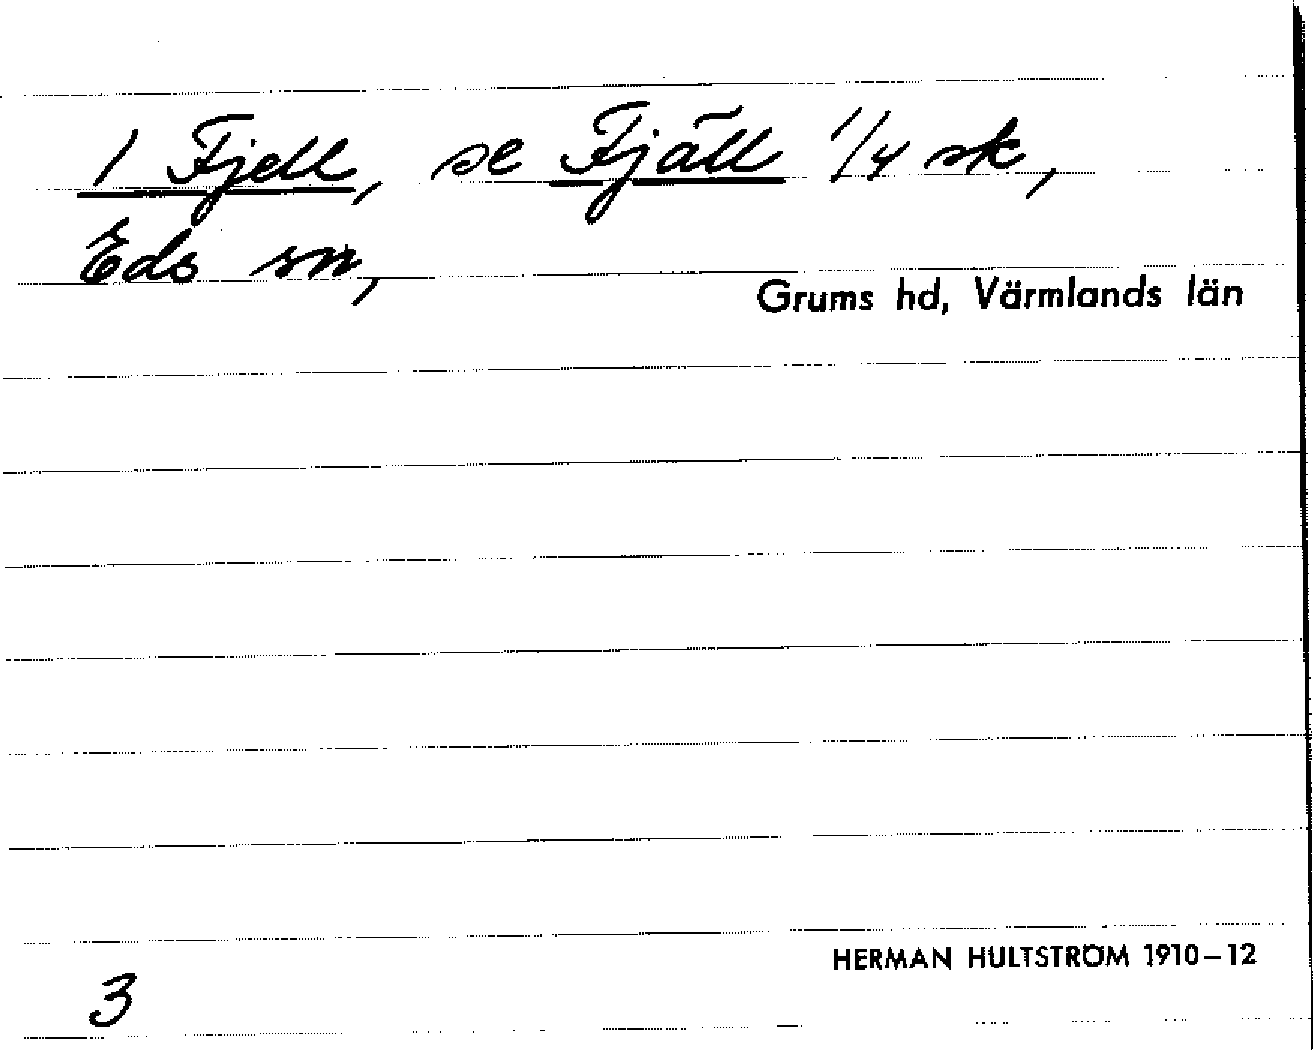 1 Fjell, se Fjäll 1/4 sk,
Eds sn,
Grums hd, Värmlands län
HERMAN HULTSTRÖM 1910-12
3